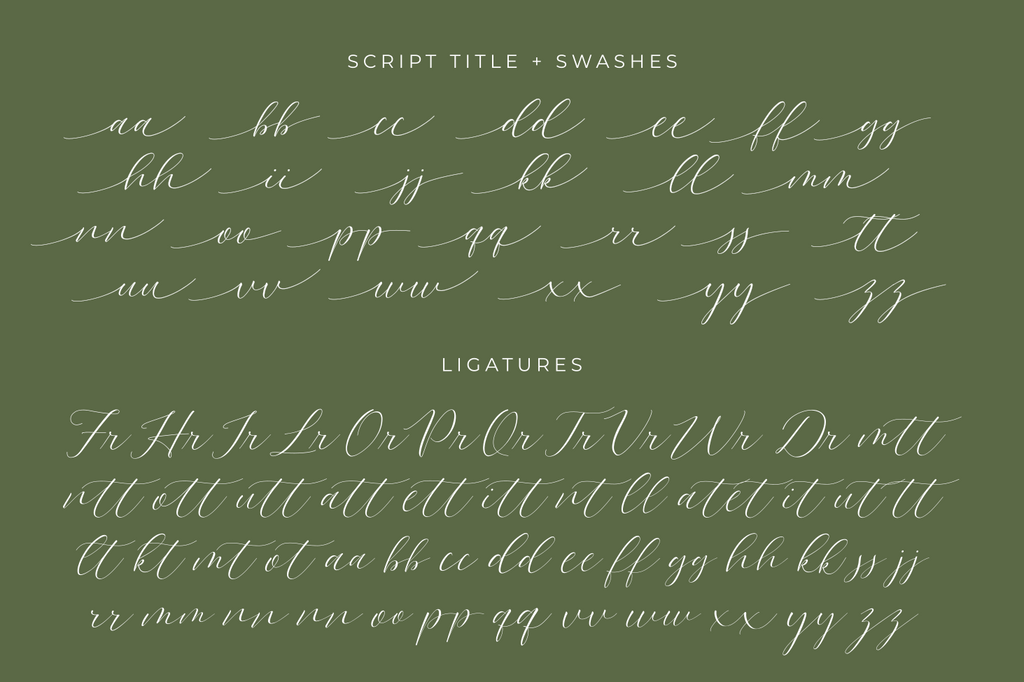 SCRIPT TITLE + SWASHES
aa bb cc dd ee ff gg
hh ii jj kk ll mm
nn oo pp qq rr ss tt
uu vv ww xx yy zz
LIGATURES
Fr Hr Ir Lr Or Pr Qr Tr Vr Wr Dr mtt
ntt ott utt att ett itt nt ll at et it ut tt
lt kt mt ot aa bb cc dd ee ff gg hh kk ss jj
rr mm nn nn oo pp qq vv ww xx yy zz